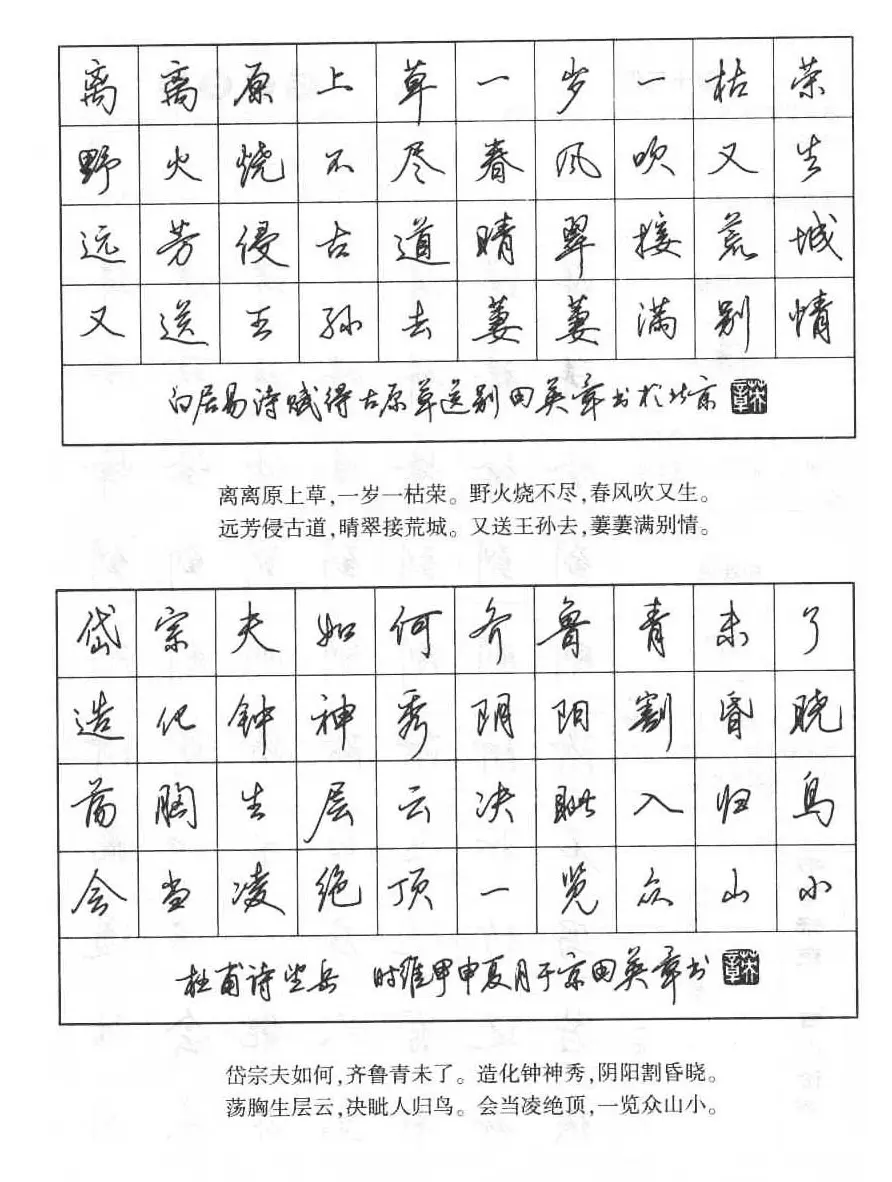 离离原上草一岁一枯荣
野火烧不尽春风吹又生
远芳侵古道晴翠接荒城
又送王孙去萋萋满别情
白居易诗赋得古原草送别田英章书于北京
英章
离离原上草,一岁一枯荣。野火烧不尽,春风吹又生。
远芳侵古道,晴翠接荒城。又送王孙去,萋萋满别情。
岱宗夫如何齐鲁青未了
造化钟神秀阴阳割昏晓
荡胸生层云决眦入归鸟
会当凌绝顶一览众山小
杜甫诗望岳 时维甲申夏月于京田英章书
英章
岱宗夫如何,齐鲁青未了。造化钟神秀,阴阳割昏晓。
荡胸生层云,决眦人归鸟。会当凌绝顶,一览众山小。